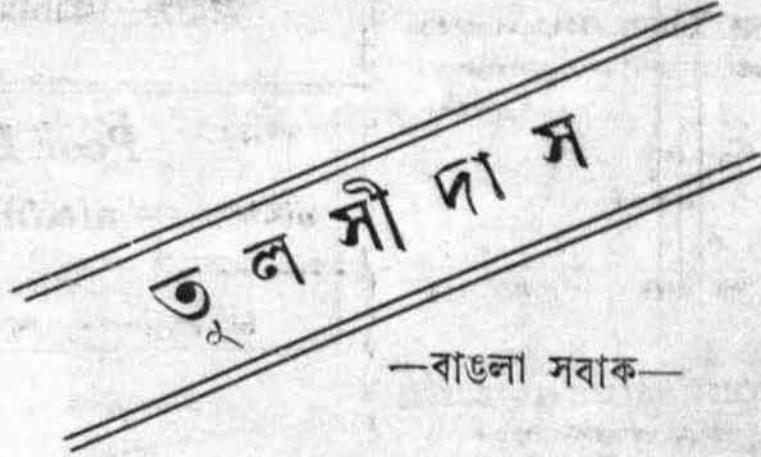 তুলসীদাস
—বাঙলা সবাক—